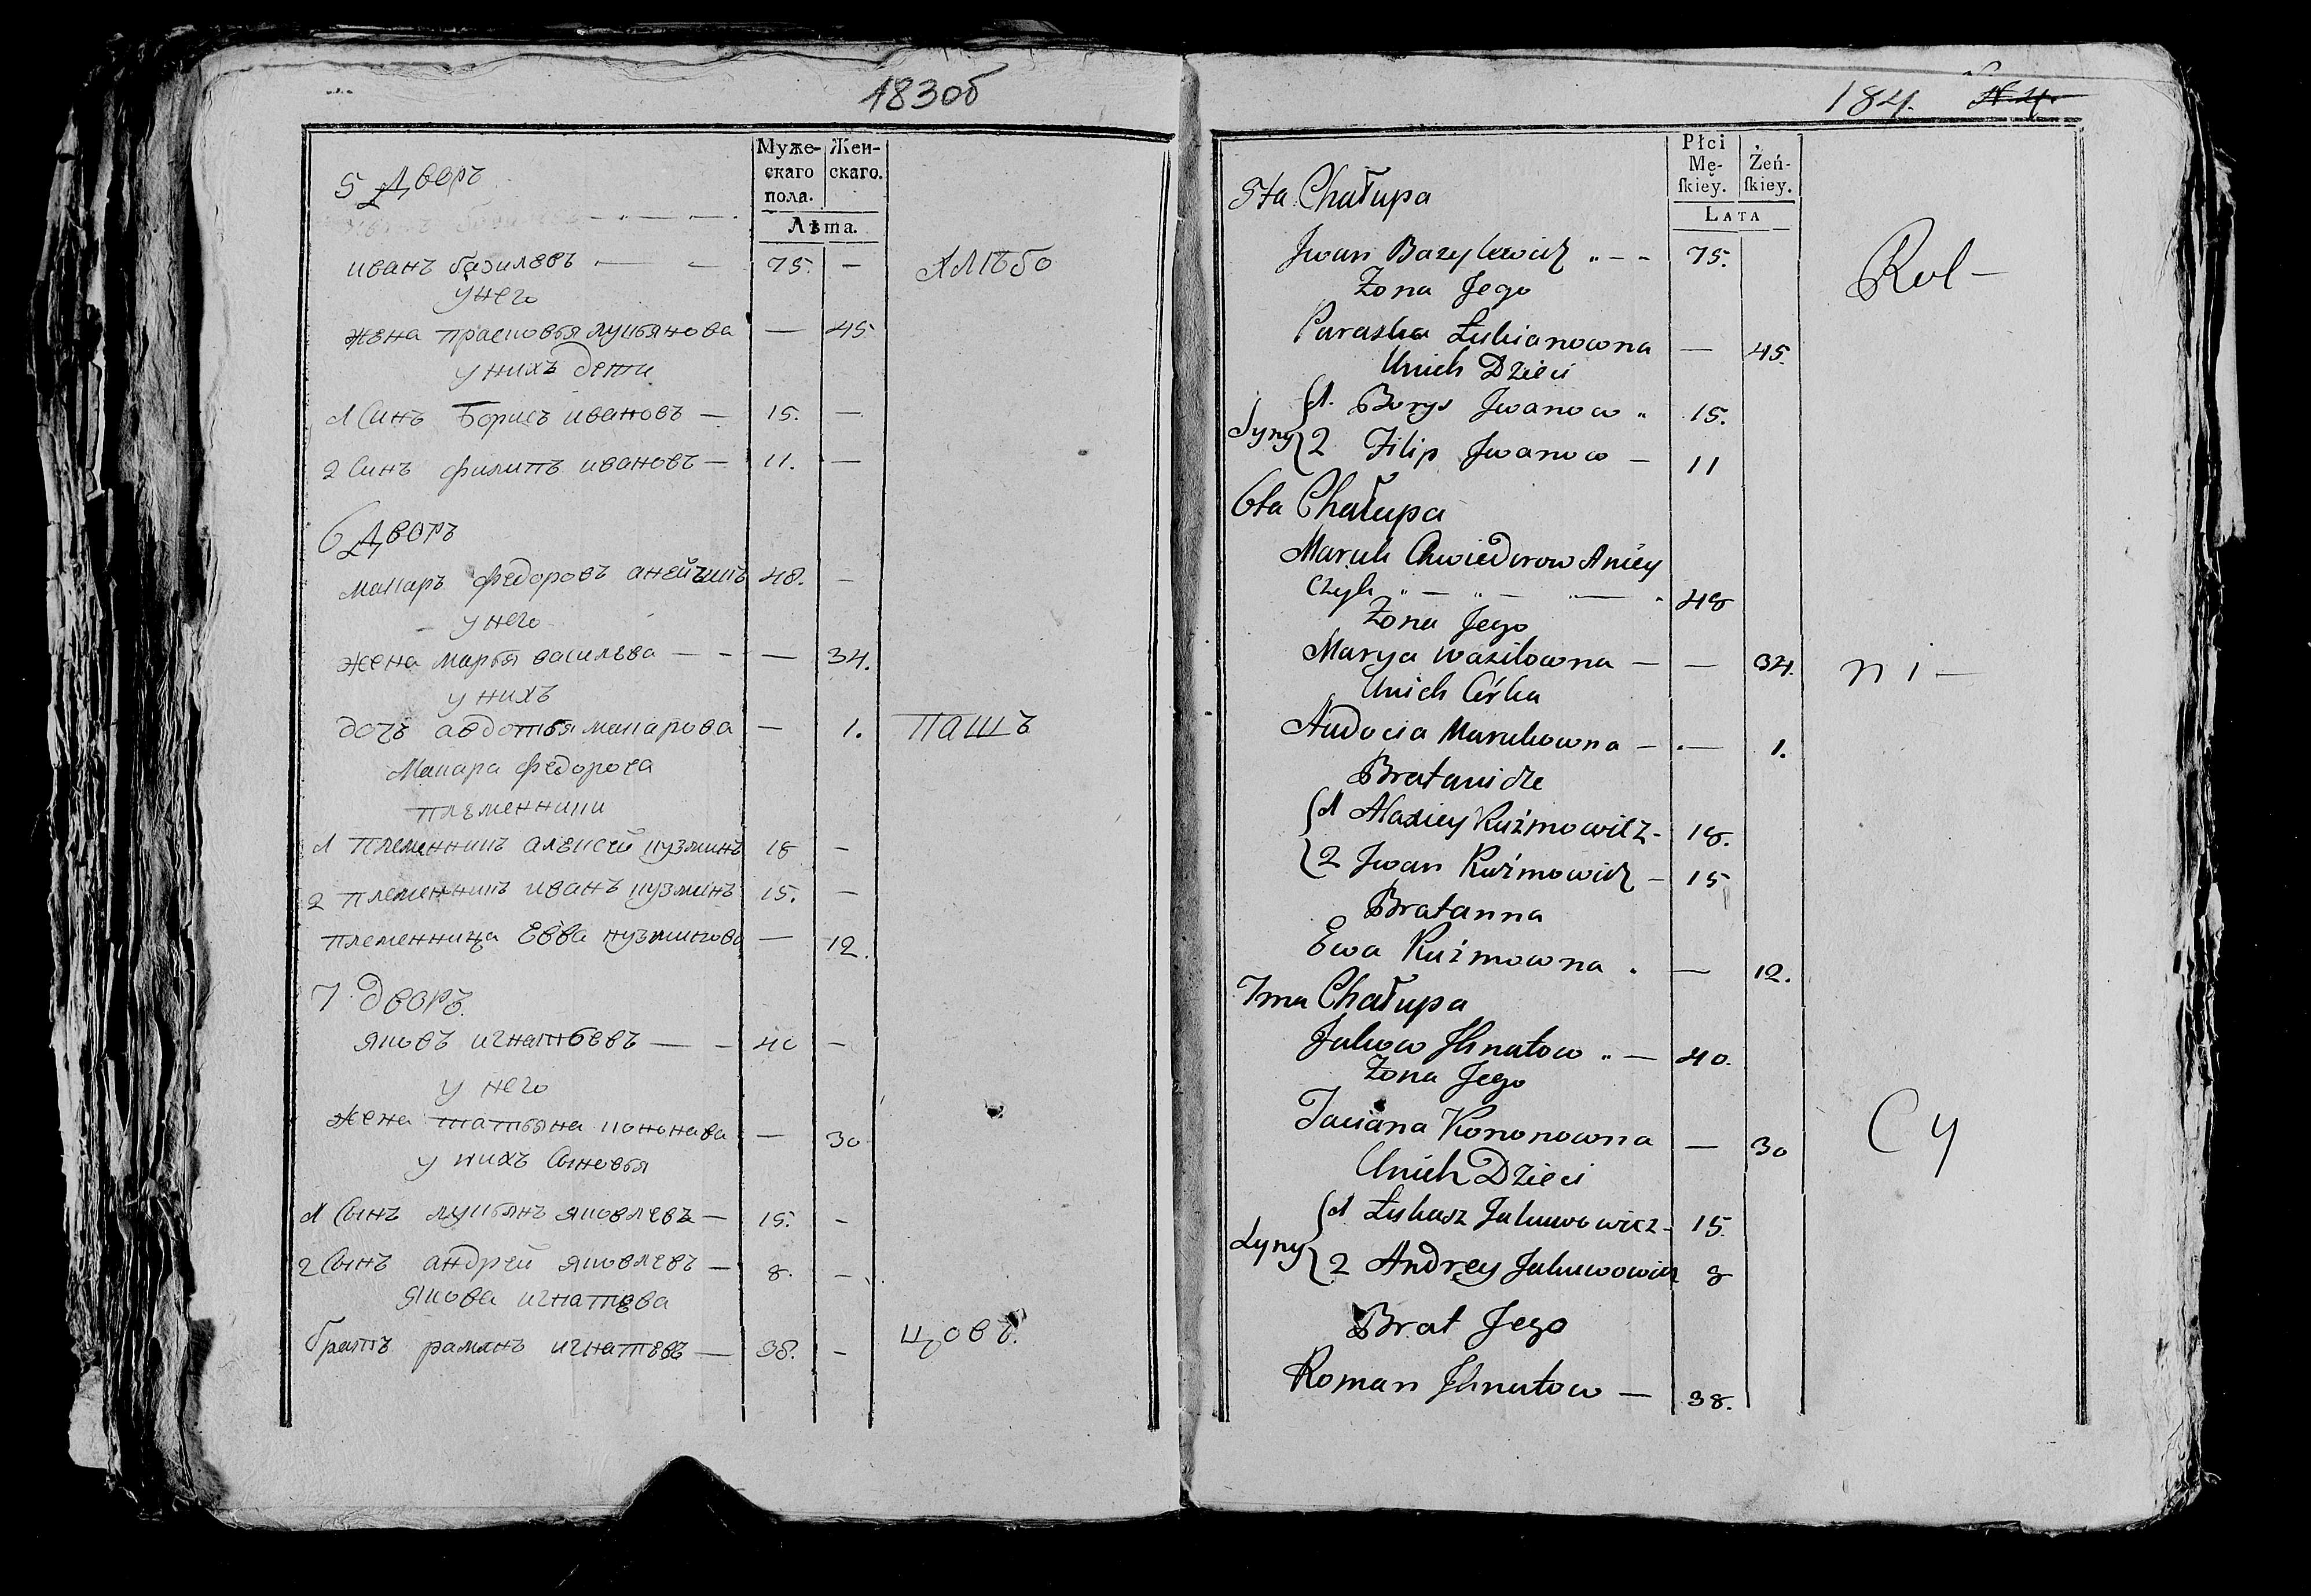 183об
Муже- Жен-
скаго скаго.
пола.
Лѣта.
5 Дворъ
иванъ базилевъ — — 75. —
хлѣбо
унего
жена прасковья лукьянова — 45
унихъ дети
1 Синъ Борисъ ивановъ — 15. —
2 Синъ филипъ ивановъ — 11. —
6 Дворъ
макаръ федоровъ анейчикъ 48. —
у него
жена марья васильва — - — 34.
у нихъ
дочь авдотья макарова — 1.
пашъ
Макара федорова
племенники
1 племенникъ алексей кузминъ 18 —
2 племенникъ иванъ кузминъ 15. —
племенница Евва кузминова — 12.
7 дворъ.
яковъ игнатьевъ — - 40 —
у него
жена татьяна кононава — 30
у нихъ Сыновья
1 Сынъ лукьянъ яковлевъ — 15. -
2 Сынъ андрей яковлевъ — 8. —
якова игнатева
братъ раманъ игнатевъ — 38. -
цовъ.
184. N 4.
Płci
Mę- Żeń-
ſkiey. ſkiey.
LATA
5ta Chałupa
Jwan Bazylewicz „ - - 75.
Rol-
Żona Jego
Paraska Łukianowna — 45.
Unich Dzieci
Syny { 1. Borys Jwanow „ 15.
2 Filip Jwanow — 11
6ta Chałupa
Maruk Chwiedorow Aniey
czyk „ — „ — „ — . 48
Żona Jego
Marya Wazilowna — — 34.
ni-
Unich Córka
Audocia Marukowna — . — 1.
Bratanicze
{ 1 Alaxiey Kuźmowicz - 18.
2 Jwan Kuźmowicz — 15
Bratanna
Ewa Kuźmowna . — 12.
7ma Chałupa
Jakow Jhnatow „ — 40.
Żona Jego
Taciana Kononowna — 30
Cy
Unich Dzieci
Syny { 1 Łukasz Jakuwowicz - 15.
2 Andrey Jakuwowicz 8
Brat Jego
Roman Jhnatow — 38.